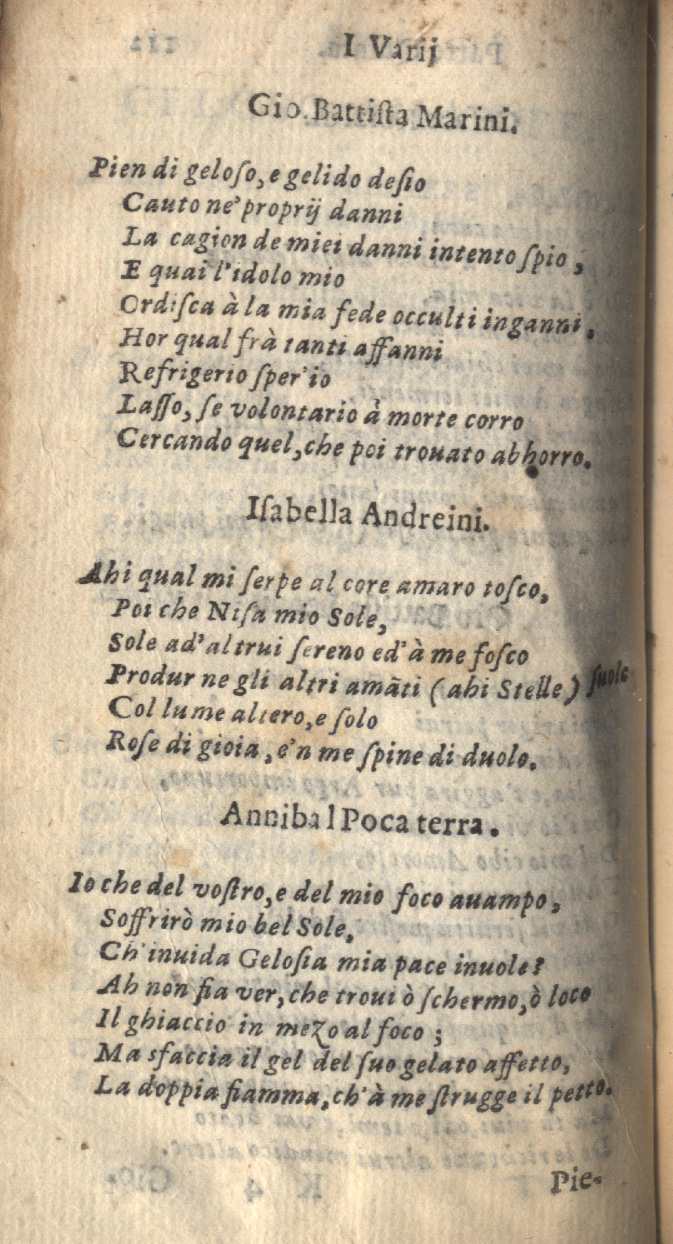 I Varij
Gio. Battiſta Marini.
Pien di geloſo, e gelido deſio
Cauto ne' proprij danni
La cagion de miei danni intento ſpio,
E quai l'idolo mio
Ordiſca à la mia fede occulti inganni,
Hor qual frà tanti affanni
Refrigerio ſper'io
Laſſo, ſe volontario à morte corro
Cercando quel, che poi trouato abhorro.
Iſabella Andreini.
Ahi qual mi ſerpe al core amaro toſco,
Poi che Niſa mio Sole,
Sole ad'altrui ſereno ed'à me foſco
Produr ne gli altri amāti (ahi Stelle) ſuole
Col lume altero, e ſolo
Roſe di gioia, e'n me ſpine di duolo.
Annibal Pocaterra.
Io che del voſtro, e del mio foco auampo,
Soffrirò mio bel Sole,
Ch'inuida Geloſia mia pace inuole?
Ah non fia ver, che troui ò ſchermo, ò loco
Il ghiaccio in mezo al foco;
Ma sfaccia il gel del ſuo gelato affetto,
La doppia fiamma, ch'à me ſtrugge il petto.
Pie-